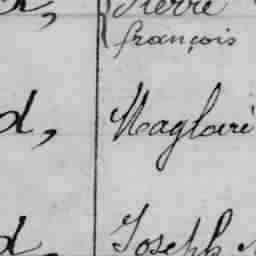 Pierre
françois
d, Magloire
d, Joseph